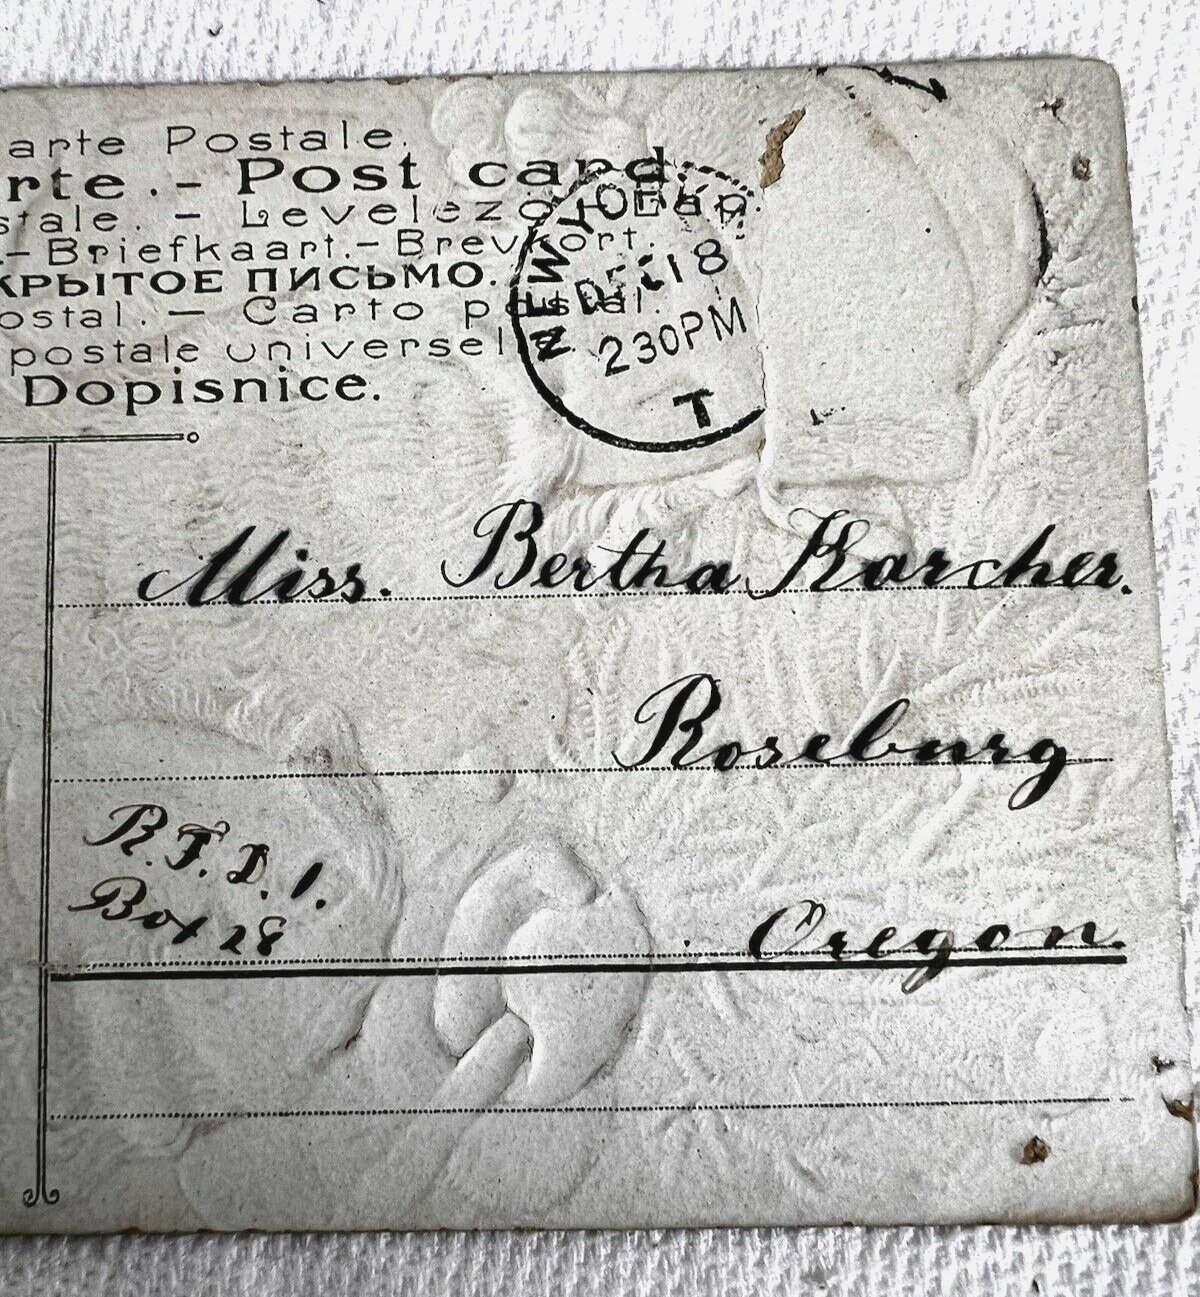 arte Postale.
rte. - Post card.
stale. - Levelező-Lap.
- Briefkaart. - Brevkort.
КРЫТОЕ ПИСЬМО.
ostal. - Carto postal.
postale universel
Dopisnice.
NEW YO
DEC 18
230PM
T
Miss. Bertha Karcher.
Roseburg
R.F.D. 1.
Box 28
Oregon.